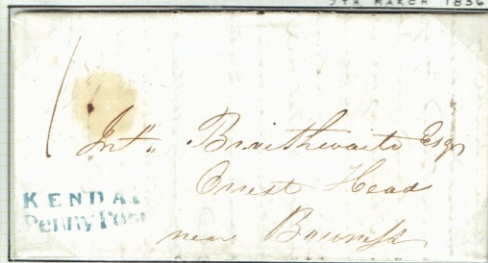 5TH MARCH 1836
1
Jnº. Braithwaite Esqr
Orrest Head
near Bowness
KENDAL
Penny Post